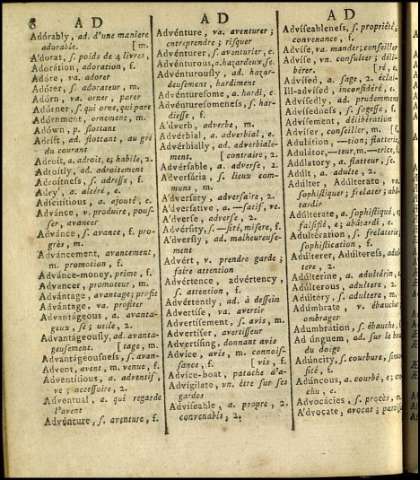 8 A D
A D
A D
Adórably, ad. d'une maniere
adorable. [m.
A'dorat, s. poids de 4 livres,
Adorátion, adoration, f.
Adóre, va. adorer
Adórer, s. adorateur, m.
Adórn, va. orner, parer
Adórner, s. qui orne, qui pare
Adórnment, ornement, m.
Adówn, p. flottant
Adríft, ad. flottant, au gré
du courant
Adroit, a. adroit, e; habile, 2.
Adroitly, ad. adroitement
Adroitness, s. adresse, f.
Adry, a. altéré, e.
Adscititious, a. ajouté, e.
Advánce, v. produire, pous-
ser, avancer
Advánce, s. avance, f. pro-
grès, m.
Advancement, avancement,
m. promotion, f.
Advánce-money, prime, f.
Advancer, promoteur, m.
Advántage, avantage; profit
Advántage, va. profiter
Advantágeous, a. avanta-
geux, se; utile, 2.
Advantágeously, ad. avanta-
geusement. [tage, m.
Advantágeousness, s. avan-
Advent, avent, m. venue, f.
Adventitious, a. adventif,
ve; accessoire, 2.
Adventual, a. qui regarde
l'avent
Advénture, s. aventure, f.
Advénture, va. aventurer;
entreprendre; risquer
Advénturer, s. aventurier, e.
Advénturous, a. hazardeux, se.
Advénturously, ad. hazar-
deusement, hardiment
Advénturesome, a. hardi, e.
Advénturesomeness, s. har-
diesse, f.
A'dverb, adverbe, m.
Advérbial, a. adverbial, e.
Advérbially, ad. adverbiale-
ment. [contraire, 2.
Advérsable, a. adverse, 2.
Adversária, s. lieux com-
muns, m.
A'dversary, adversaire, 2.
A'dversative, a. —satif, ve.
A'dverse, adverse, 2.
Advérsity, s. —sité, misere, f.
A'dversly, ad. malheureuse-
ment
Advért, v. prendre garde;
faire attention
Advértence, advértency,
s. attention, f.
Advértently, ad. à dessein
Advertíse, va. avertir
Advertísement, s. avis, m.
Advertíser, avertisseur
Advertísing, donnant avis
Advice, avis, m. connois-
sance, f. [vis, f.
Advice-boat, patache d'a-
Advígilate, vn. être sur ses
gardes
Advíseable, a. propre, 2.
convenable, 2.
Advíseableness, s. propriété,
convenance, f.
Advíse, va. mander; conseiller
Advíse, vn. consulter; déli-
bérer. e.
Advísed, a. sage, 2. éclai-
Ill-advísed, inconsidéré, e.
Advísedly, ad. prudemment
Advísedness, s. sagesse, f.
Advísement, délibération
Advíser, conseiller, m. [f.
Adulátion, —tion; flatterie,
Adulátor, —teur, m.—trice, f.
Addlatory, a. flatteur, se.
Adúlt, a. adulte, 2.
Adúlter, Adúlterate, va.
sophistiquer; frelater; abâ-
tardir
Adúlterate, a. sophistiqué, e;
falsifié, e; abâtardi, e.
Adulterátion, s. frelaterie,
sophistication, f.
Adúlterer, Adúlteress, adul-
tere, 2.
Adúlterine, a. adultérin, e.
Adúlterous, adultere, 2.
Adúltery, s. adultere, m.
Adúmbrate, v. ébauche;
ombrager
Adumbrátion, s. ébauche,
Ad unguem, ad. sur le bout
du doigt
Adúncity, s. courbure, sinuo-
sité, f.
Adúncous, a. courbé, e; cro-
chu, e.
Advocácies, s. procès, m.
A'dvocate, avocat;